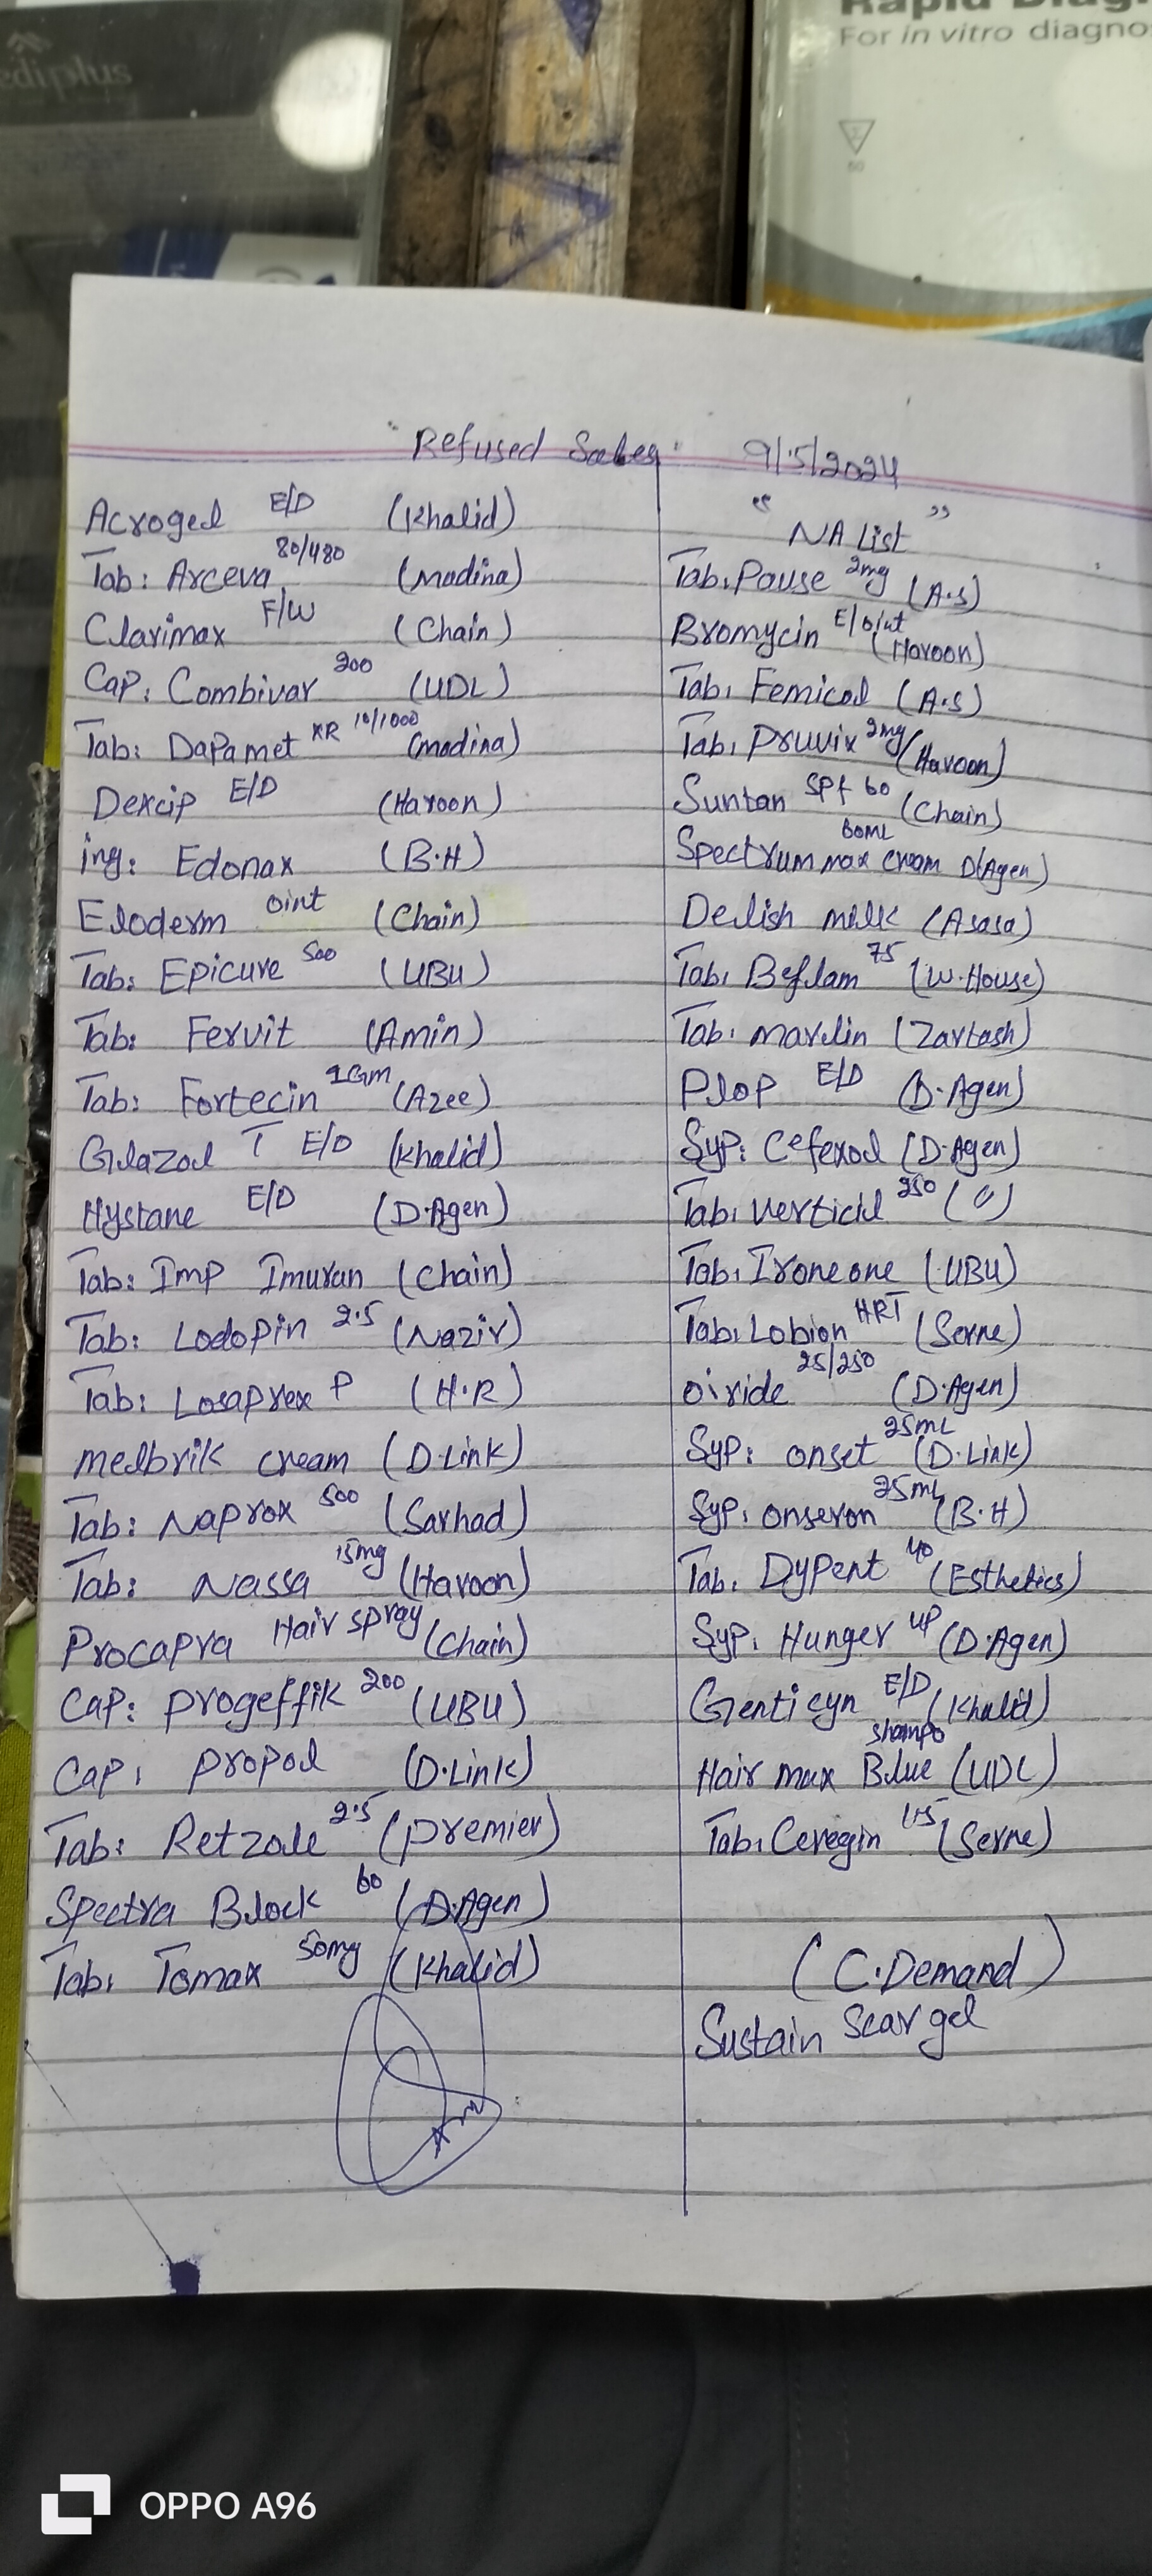 ediplus
Rapid Diag
For in vitro diagno
"Refused Sales" 9/5/2024
Acrogel E/D (Khalid)
Tab: Arceva 80/480 (Madina)
Clarimax F/W (Chain)
Cap: Combivar 200 (UDL)
Tab: Dapamet XR 10/1000 (Madina)
Dexcip E/D (Haroon)
inj: Edonax (B.H)
Eloderm oint (Chain)
Tab: Epicure 500 (UBU)
Tab: Fervit (Amin)
Tab: Fortecin 1Gm (Azee)
Glazol T E/D (Khalid)
Hystane E/D (D.Agen)
Tab: Imp Imuran (Chain)
Tab: Lodopin 2.5 (Nazir)
Tab: Losaprex P (H.R)
medbrik cream (D.Link)
Tab: Naprox 500 (Sarhad)
Tab: Nassa 15mg (Haroon)
Procapra Hair spray (Chain)
Cap: Progeffik 200 (UBU)
Cap: Propol (D.Link)
Tab: Retzole 2.5 (Premier)
Spectra Block 60 (D.Agen)
Tab: Tomax 50mg (Khalid)
"NA List"
Tab: Pause 2mg (A.S)
Bromycin E/oint (Haroon)
Tab: Femicol (A.S)
Tab: Pruvix 2mg (Haroon)
Suntan SPf 60 (Chain)
Spectrum max cream 60ML D(Agen)
Delish milk (Asasa)
Tab: Beflam 75 (W.House)
Tab: Marvlin (Zartash)
Plop E/D (D.Agen)
Syp: Cefexol (D.Agen)
Tab: Verticil 250 (")
Tab: Irone one (UBU)
Tab: Lobion HRT (Serne)
Oiride 25/250 (D.Agen)
Syp: onset 25mL (D.Link)
Syp: onseron 25mL (B.H)
Tab: Dypent 40 (Esthetics)
Syp: Hunger up (D.Agen)
Genticyn E/D (Khalid)
Hair max Blue shampo (UDL)
Tab: Ceregin (Serne)
(C.Demand)
Sustain Scar gel
OPPO A96